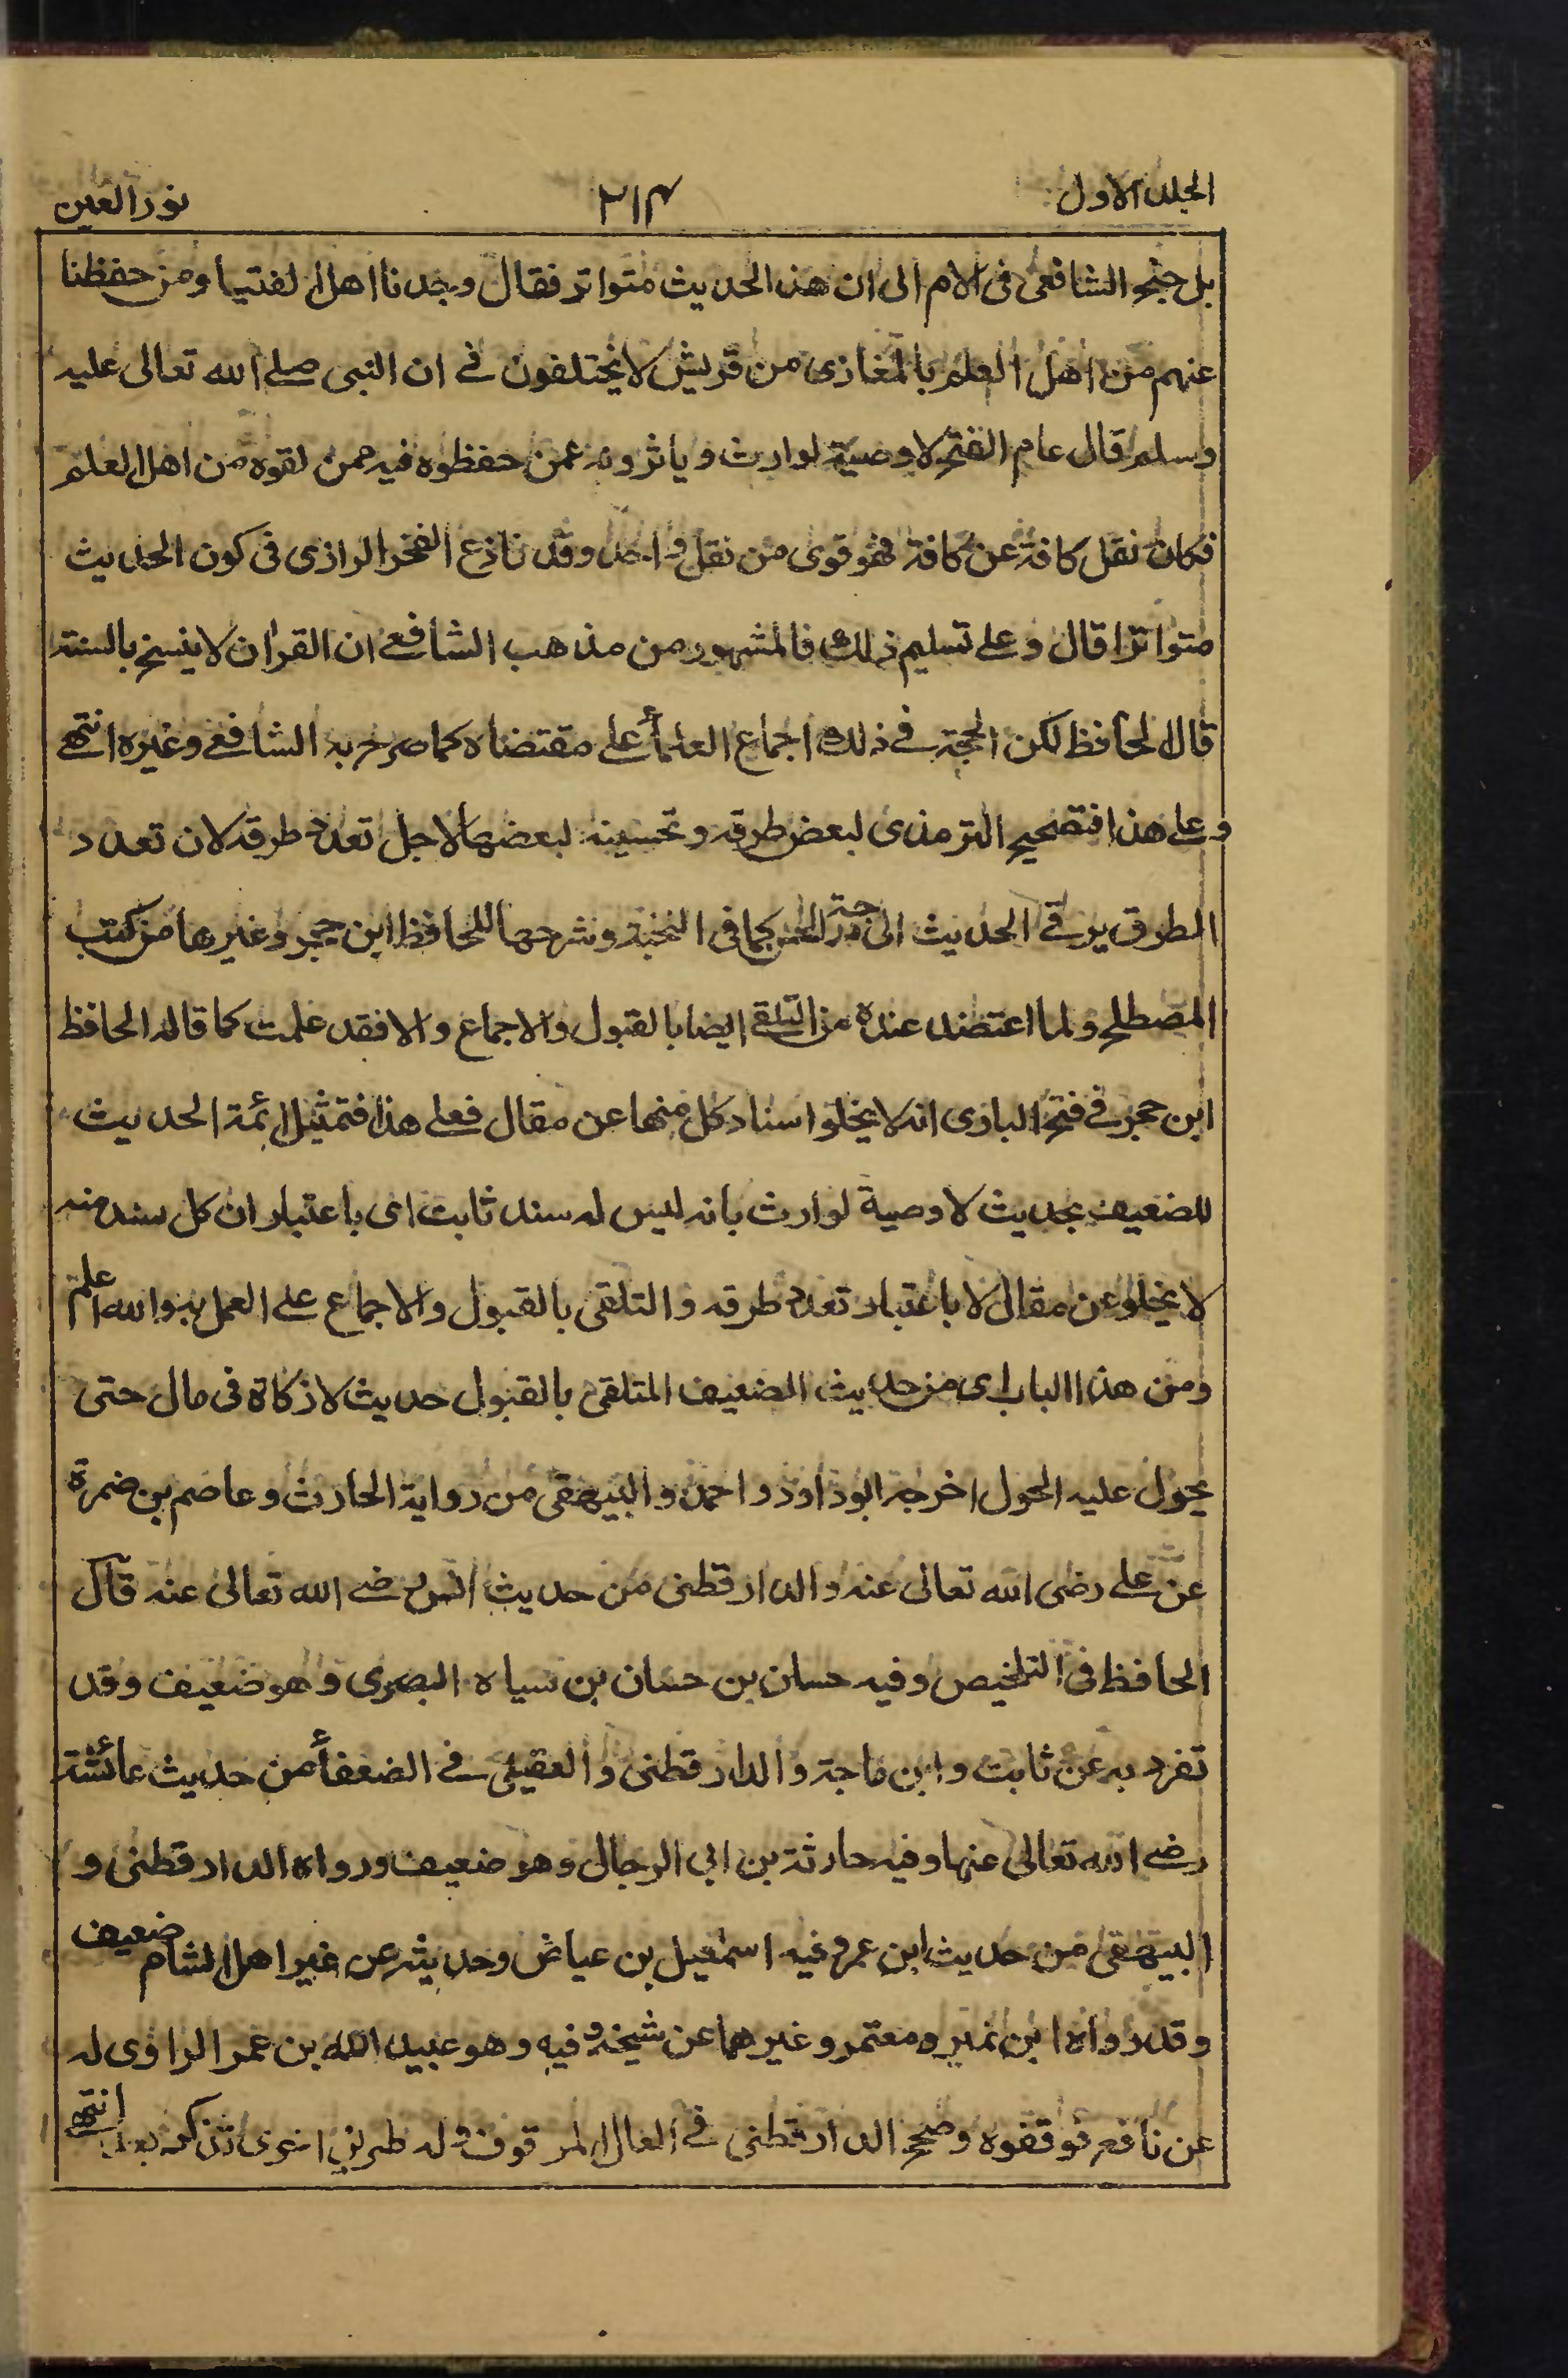 الجلد الاول ٢١٤ نور العين
بل جنح الشافعى فى الام الى ان هذا الحديث متواتر فقال وجدنا اهل الفتيا ومن حفظنا
عنهم من اهل العلم بالمغازى من قريش لا يختلفون فے ان النبى صلے الله تعالى عليه
وسلم قال عام الفتح لا وصية لوارث ويأثرونه عمن حفظوه فيه ممن لقوه من اهل العلم
فكان نقل كافة عن كافة فهو قوى من نقل واحد وقد نازع الفخر الرازى فى كون الحديث
متواترا قال وعلے تسليم ذلك فالمشهور من مذهب الشافعے ان القران لا ينسخ بالسنة
قال الحافظ لكن الحجة فے ذلك اجماع العلمأ علے مقتضاه كما صرح به الشافعے وغيره انتهے
وعلے هذا فتصحيح الترمذى لبعض طرقه وتحسينه لبعضها لاجل تعدد طرقه لان تعدد
الطرق يرقے الحديث الى درجة الحسن كما فى النخبة وشرحها للحافظ ابن حجر وغيرها من كتب
المصطلح ولما اعتضد عنده من التلقے ايضا بالقبول والاجماع والا فقد علمت كما قاله الحافظ
ابن حجر فے فتح البارى انه لا يخلو اسناد كل منها عن مقال فعلے هذا فتمثيل ائمة الحديث
للضعيف بحديث لا وصية لوارث بانه ليس له سند ثابت اى باعتبار ان كل سند منه
لا يخلو عن مقال لا باعتبار تعدد طرقه والتلقى بالقبول والاجماع علے العمل به والله اعلم
ومن هذا الباب اى من حديث الضعيف المتلقى بالقبول حديث لا زكاة فى مال حتى
يحول عليه الحول اخرجه ابو داؤد واحمد والبيهقى من رواية الحارث وعاصم بن ضمرة
عن علے رضى الله تعالى عنه والدارقطنى من حديث انس رضے الله تعالى عنه قال
الحافظ فى التلخيص وفيه حسان بن حسان بن سياه البصرى وهو ضعيف وقد
تفرد به عن ثابت وابن ماجة والدارقطنى والعقيلى فے الضعفأ من حديث عائشة
رضے الله تعالى عنها وفيه حارثة بن ابى الرجال وهو ضعيف ورواه الدارقطنى و
البيهقى من حديث ابن عمر وفيه اسمعيل بن عياش وحديثه عن غير اهل الشام ضعيف
وقد رواه ابن نمير ومعتمر وغيرهما عن شيخه وفيه وهو عبيد الله بن عمر الراوى له
عن نافع فوقفوه وصحح الدارقطنى فے العلل الموقوف وله طريق اخرى تذكر بعد انتهے